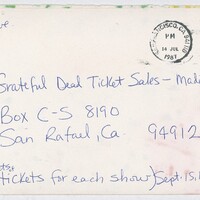 ve
SAN FRANCISCO, CA 941
PM
16 JUL
1987
Grateful Dead Ticket Sales - Madi
Box C-S 8190
San Rafael, Ca 94912
ets
tickets for each show) Sept. 15, 1